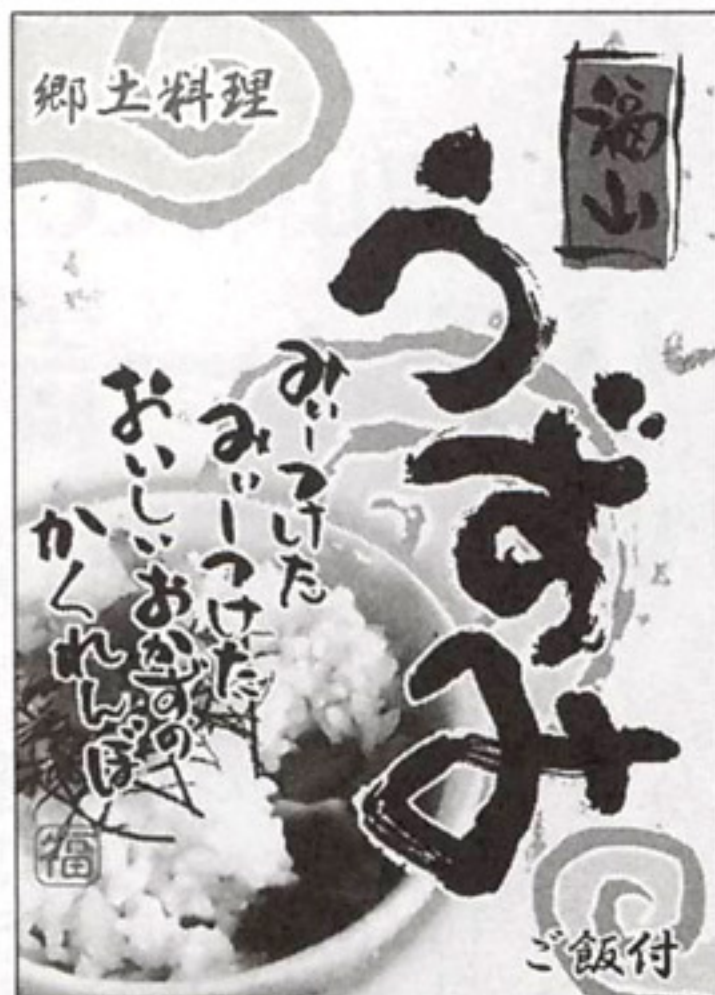 郷土料理
福山
うずみ
みぃーつけた
みぃーつけた
おいしいおかずの
かくれんぼ
福
ご飯付